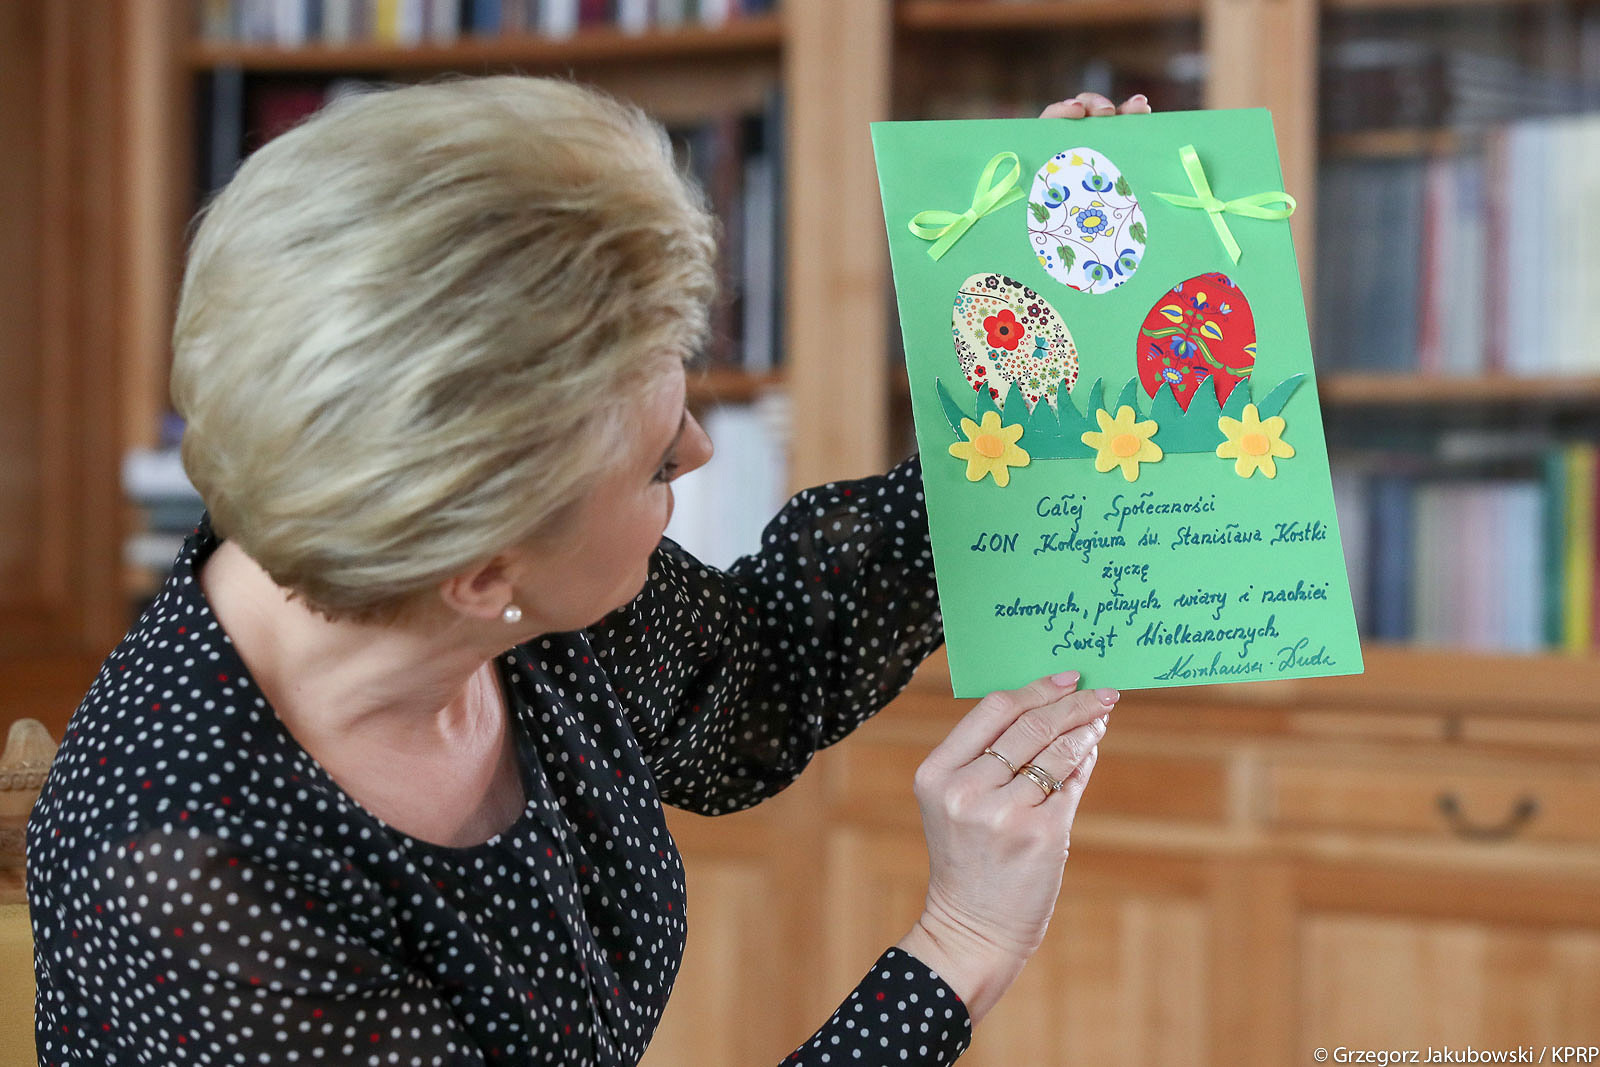 Całej Społeczności
LON Kolegium św. Stanisława Kostki
życzę
zdrowych, pełnych wiary i nadziei
Świąt Wielkanocznych
AKornhauser-Duda
© Grzegorz Jakubowski / KPRP